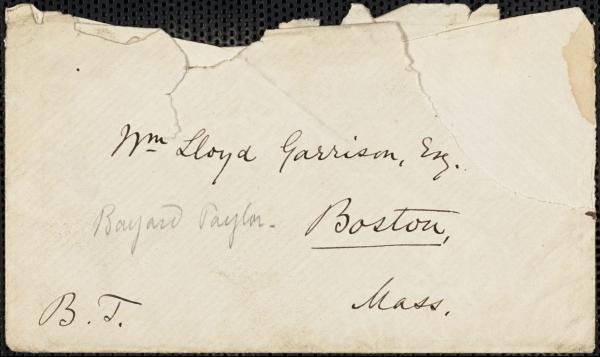 Wm Lloyd Garrison, Esq.
Bayard Taylor.
Boston,
Mass.
B. T.